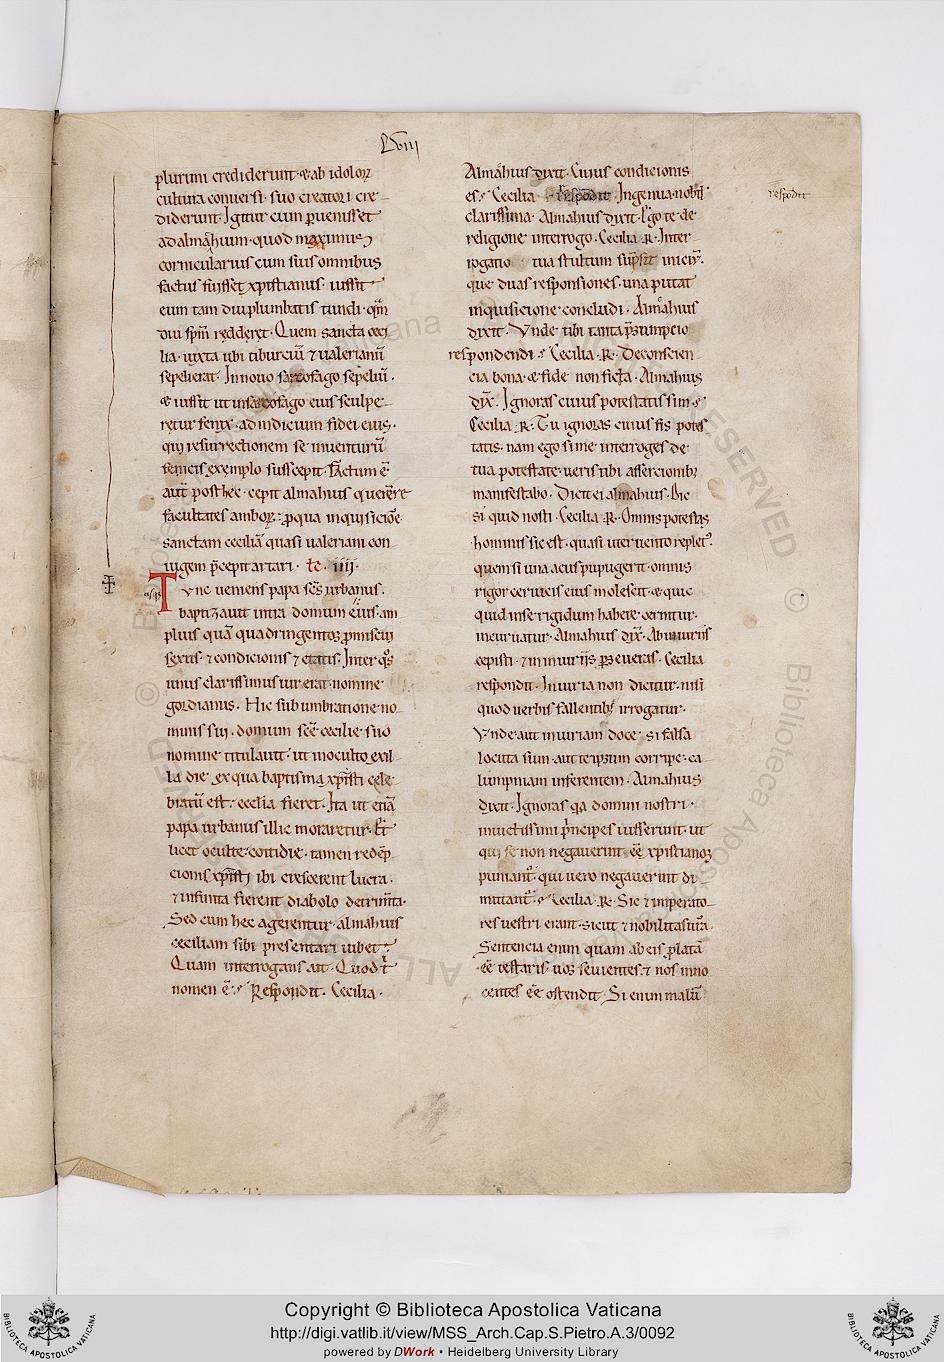 LXVIII
plurimi crediderunt· & ab idolor̄
cultura conuersi· suo creatori cre
diderunt· Igitur cum ꝑuenisset
ad almachium· quod maximus
cornicularius cum suis omnibus
factus fuisset xp̄istianus· iussit
eum tam diu plumbatis tundi· qm̄
diu sp̄m redderet· Quem sancta ceci
lia· iuxta ubi tiburciū & ualerianū
sepelierat· In nouo sarcofago sepeliuit·
& iussit ut in sarcofago eius sculpe
retur fenix· ad indicium fidei eius·
qui resurrectionem se inuenturū
fenicis exemplo suscepit· Factum ē
aut̄ post hec· cepit almahius querere
facultates ambor̄· pro qua inquisicioē·
sanctam ceciliā quasi ualeriani con
iugem p̄cepit artari· lc· iiii·
usqꝫ
Tunc ueniens papa sc̄s urbanus·
baptizauit intra domum eius· am
plius quā quadringentos promiscui
sexus· & condicionis & etatis· Inter q̊s
unus clarissimus uir erat nomine
gordianus· Hic sub umbratione no
minis sui· domum sc̄e cecilie suo
nomine titulauit· ut in occulto exil
la die ex qua baptisma xp̄isti cele
bratū est· ecclia fieret· Ita ut etiā
papa urbanus illic moraretur· Et
licet occulte· cottidie· tamen redēp
cionis xp̄isti ibi crescerent lucra·
& infinita fierent diabolo detrim̄ta·
Sed cum hec agerentur· almahius
ceciliam sibi presentari iubet·
Quam interrogans ait· Quod t̄
nomen ē· Respondit· Cecilia·
Almachius dixit· Cuius condicionis
es· Cecilia respōdit Ingenua· nobil̄
respōdit
clarissima· Almahius dixit· Ego te de
religione interrogo· Cecilia ·R· Inter
rogatio tua stultum sūpsit inicīu·
que duas responsiones· una putat
inquisicione concludi· Almahius
dixit· Unde tibi tanta p̄sumpcio
respondendi· Cecilia ·R· De conscien
cia bona· & fide non ficta· Almahius
dix̄· Ignoras cuius potestatis sim·
Cecilia ·R· Tu ignoras cuius sis potes
tatis· nam ego si me interroges de
tua potestate· ueris tibi assercionibꝫ
manifestabo· Dicit ei almahius· Dic
si quid nosti· Cecilia ·R· Omnis potestas
hominis sic est· quasi uter uento replet̄·
quem si una acus pupugerit· omnis
rigor ceruicis eius molescit· & quic
quid in se rigidum habere cernitur·
incuruatur· Almahius dix̄· Ab iniuriis
cepisti· & in iniuriis ꝑseueras· Cecilia
respondit· Iniuria non dicitur· nisi
quod uerbis fallentibꝫ irrogatur·
Unde aut iniuriam doce si falsa
locuta sum· aut te ipsum corripe· ca
lumpniam inferentem· Almahius
dixit· Ignoras qa domini nostri·
inuictissimi p̄ncipes iusserunt· ut
qui se non negauerint eē xp̄istianos
puniant̄· qui uero negauerint di
mittant̄· Cecilia ·R· Sic & imperato
res uestri errant· sicut & nobilitas uīa·
Sentencia enim quam ab eis prolatā
eē testaris· uos seuientes· & nos inno
centes eē ostendit· Si enim malū
Copyright © Biblioteca Apostolica Vaticana
http://digi.vatlib.it/view/MSS_Arch.Cap.S.Pietro.A.3/0092
powered by DWork • Heidelberg University Library